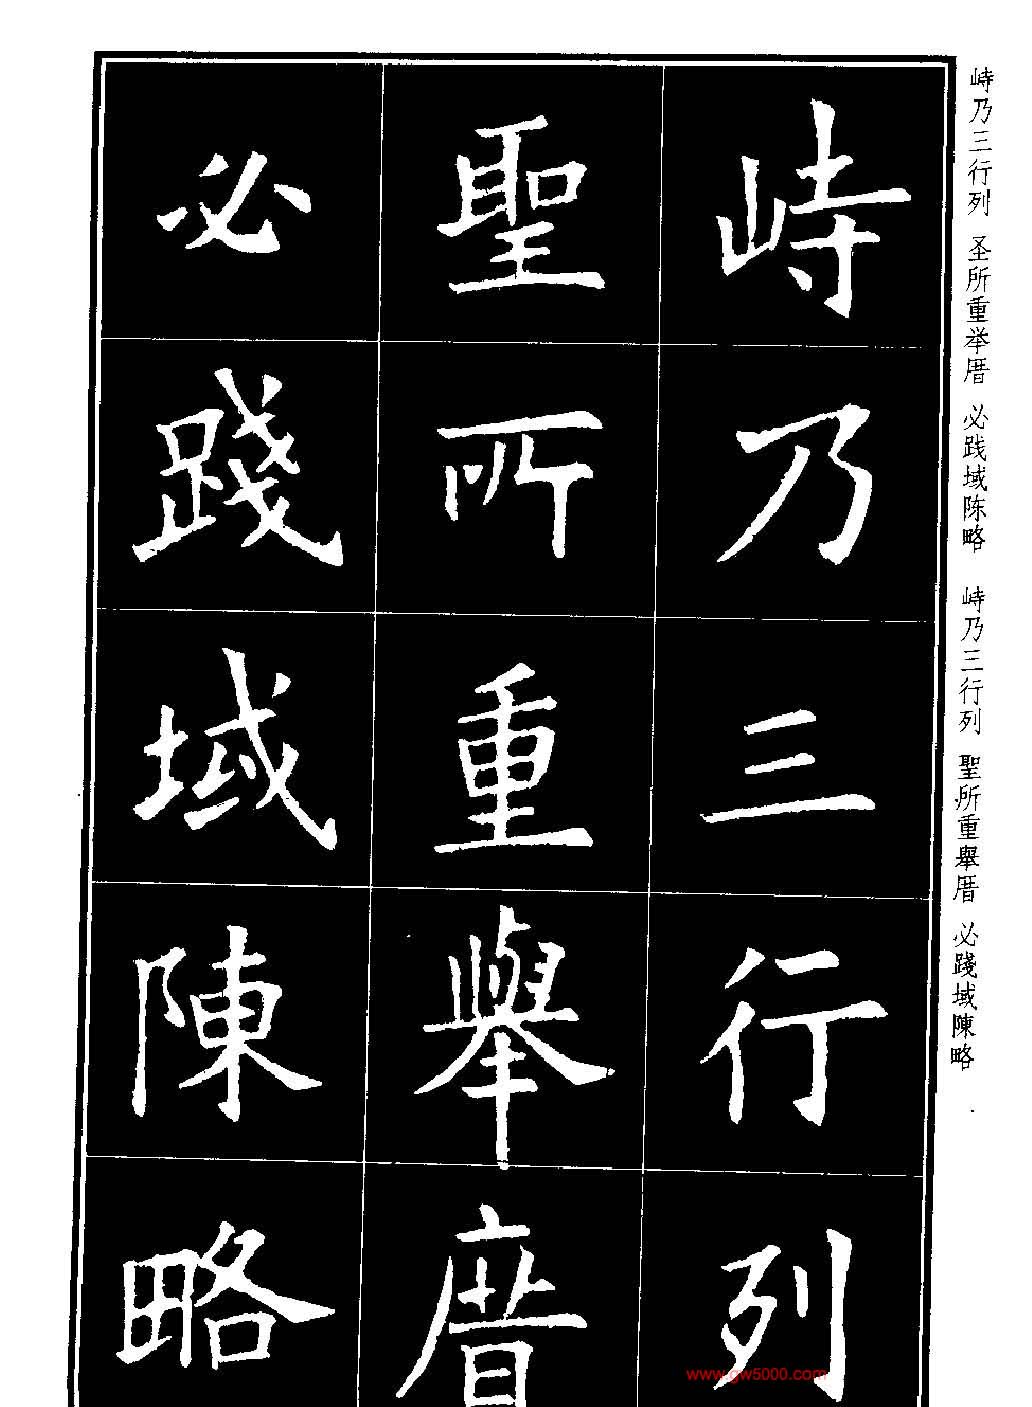 峙乃三行列 圣所重举厝 必践域陈略 峙乃三行列 聖所重舉厝 必踐域陳略
峙乃三行列
聖所重舉厝
必踐域陳略
www.gw5000.com